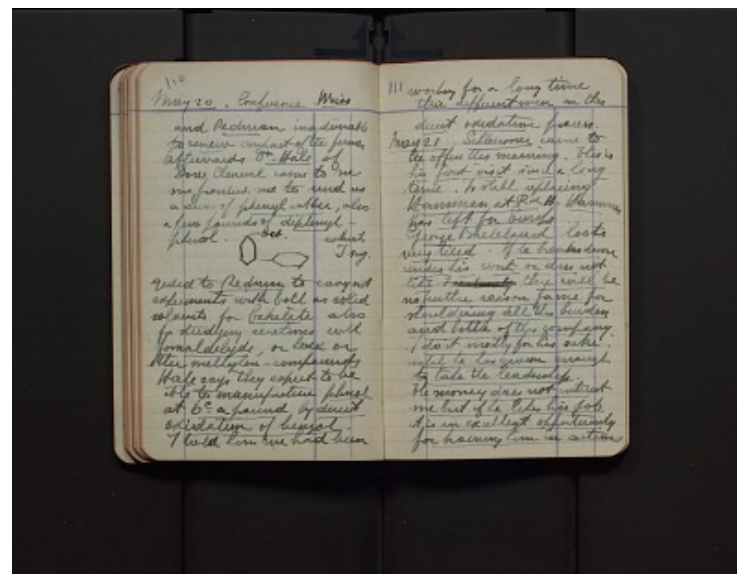 110
May 20. Conference Weiss
and Redman inadvisable
to renew contract of the former
afterwards Dr. Hale of
Dow Chemical came to see
me promised me to send us
a drum of phenyl ether, also
a few pounds of diphenyl
phenol. OH. what
I sug-
gested to Redman to carry out
experiments with both as solid
solvents for bakelite also
for studying reactions with
formaldehyde, or hexa or
other methylen-compounds
Hale says they expect to be
able to manufacture phenol
at 6c a pound by direct
oxidation of benzol.
I told him we had been
111 working for a long time
thru different men on this
direct oxidation process.
May 21. came to
the office this morning. This is
his first visit since a long
time. Is still replacing
at R & H.
has left for
George Baekeland looks
very tired. If he breaks down
under his work or does not
like there will be
no further reason for me for
shouldering all this burden
and bother of this company.
I do it mostly for his sake.
until he has grown enough
to take the leadership.
The money does not interest
me but if he likes his job
it is an excellent opportunity
for training him in action